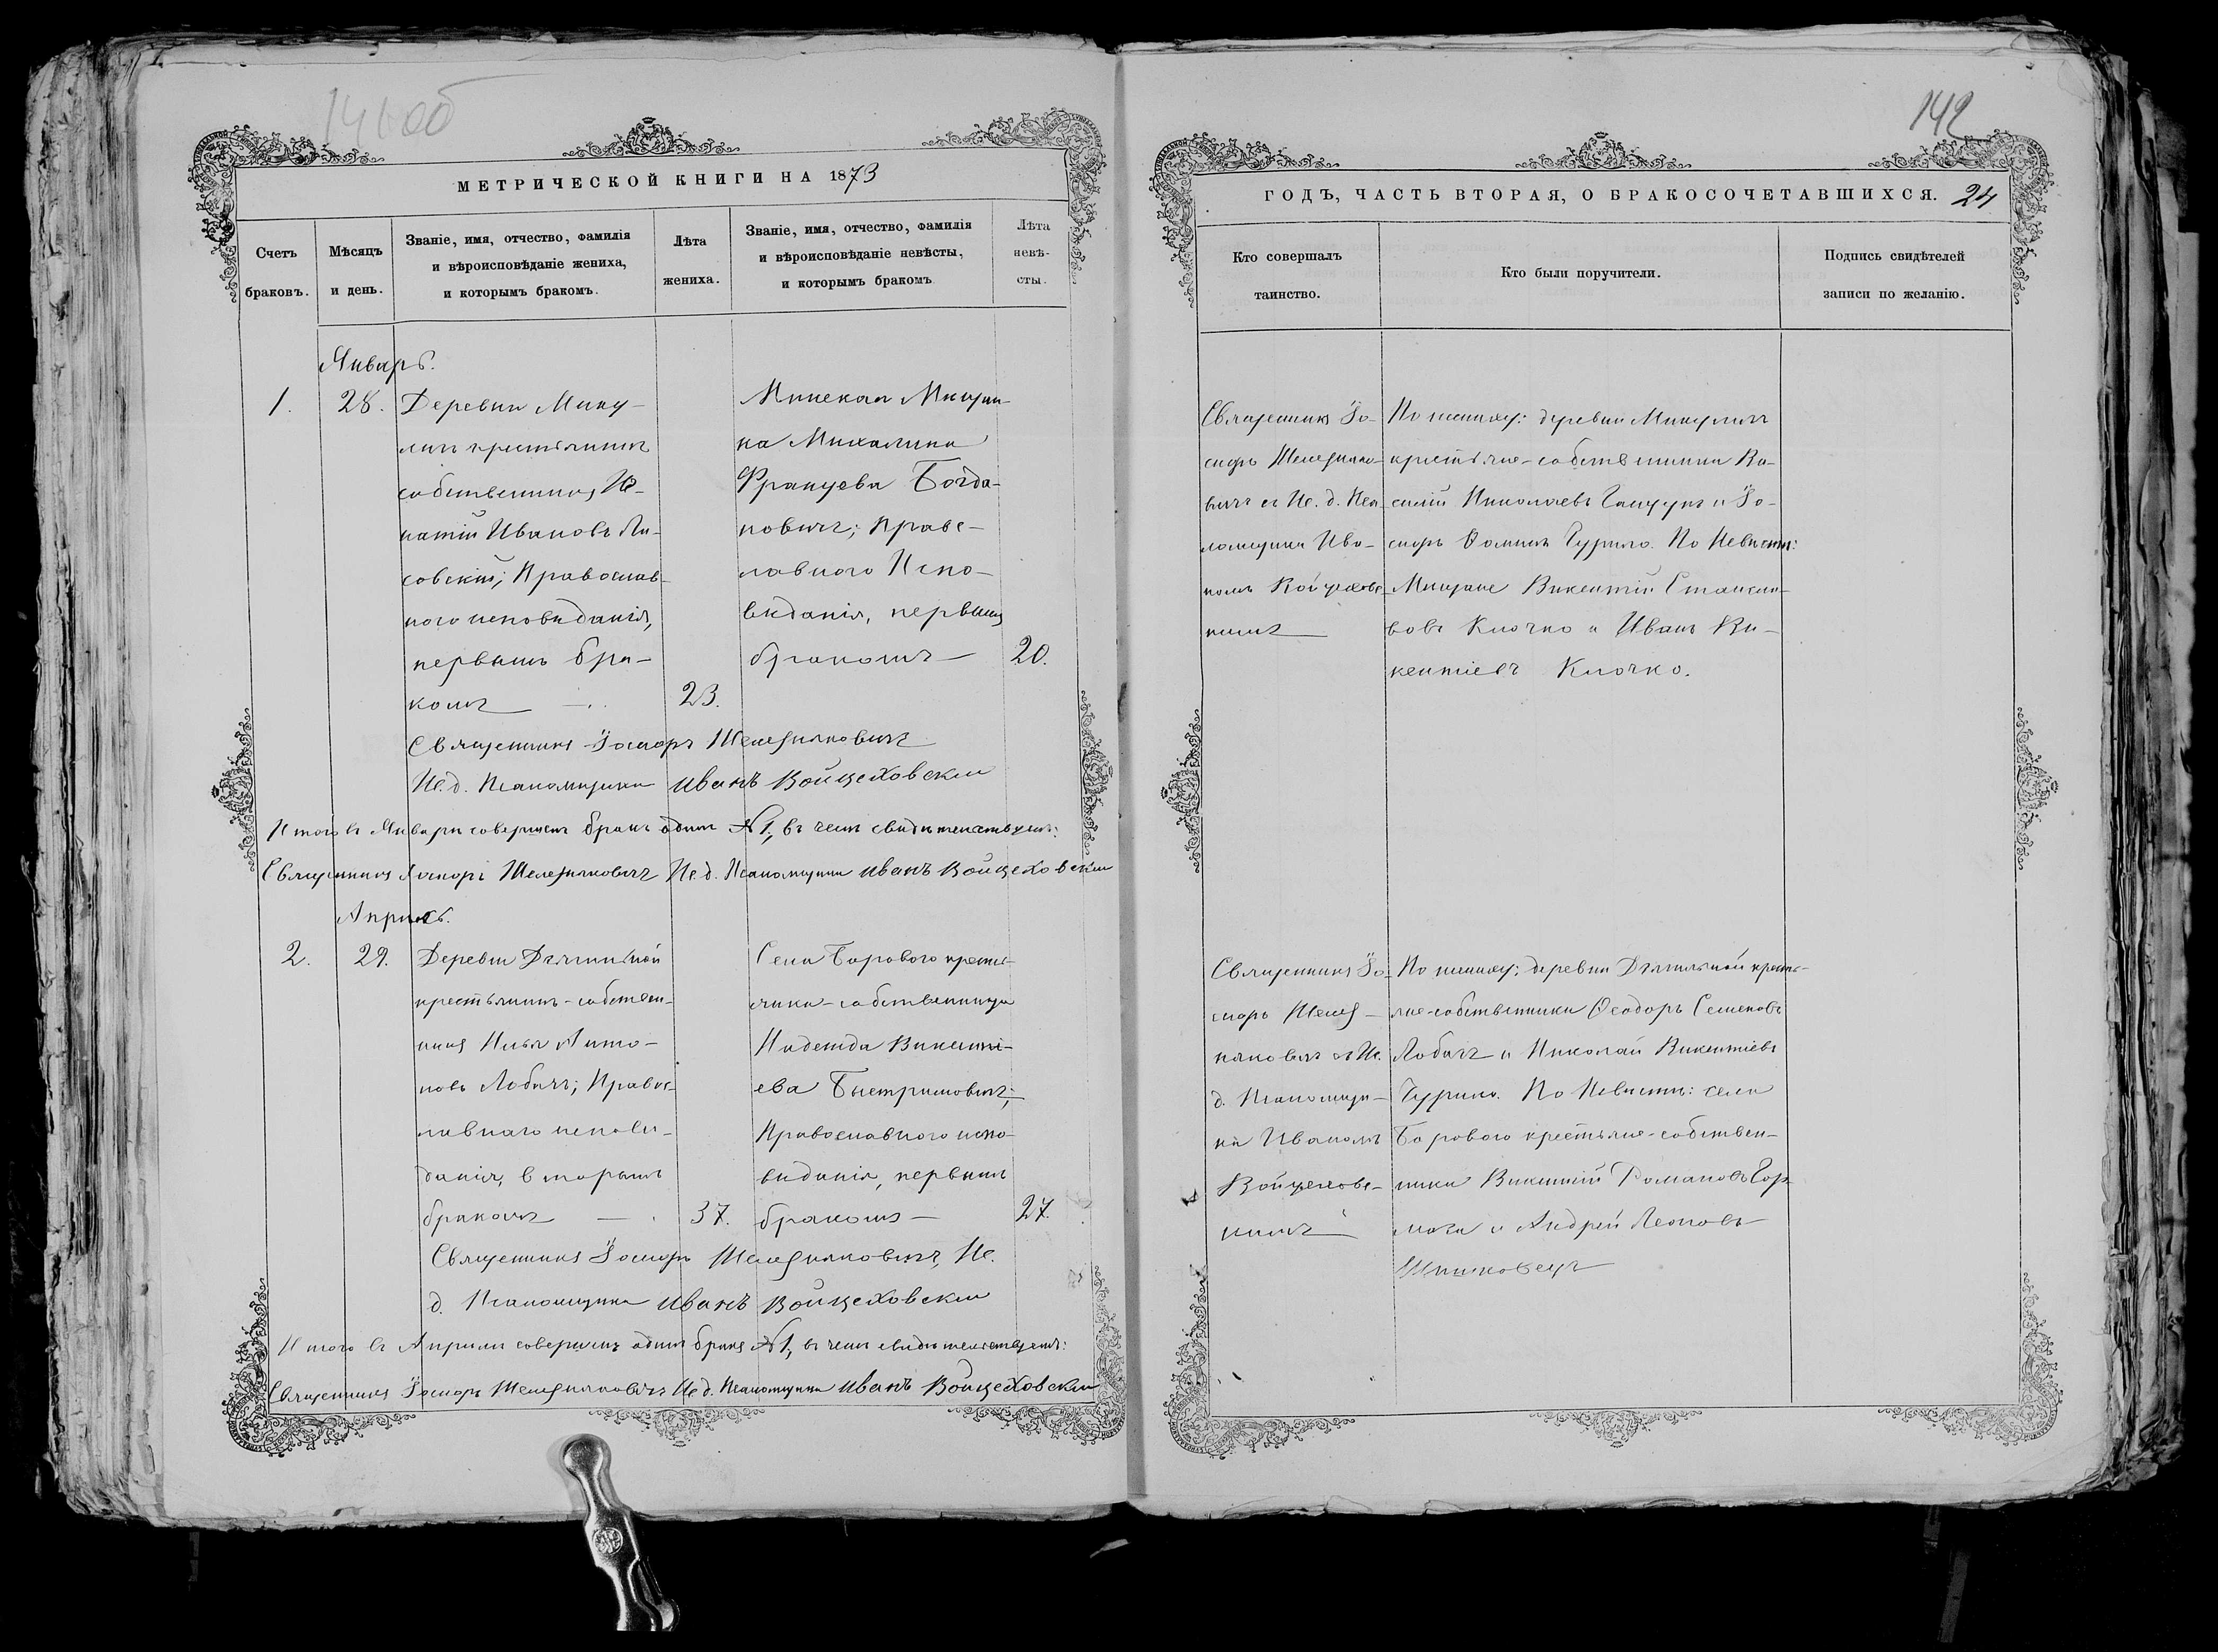 141 об
МЕТРИЧЕСКОЙ КНИГИ НА 1873
Счетъ браковъ.
Мѣсяцъ и день.
Званіе, имя, отчество, фамилія
и вѣроисповѣданіе жениха,
и которымъ бракомъ.
Лѣта жениха.
Званіе, имя, отчество, фамилія
и вѣроисповѣданіе невѣсты,
и которымъ бракомъ
Лѣта невѣ-
сты.
Январь.
1.
28.
Деревни Мику-
личъ крестьянинъ
собственникъ Иг-
натій Ивановъ Ли-
совскій; Православ-
ного исповѣданія,
первымъ бра-
комъ
23.
Минская Мѣщан-
ка Михалина
Францева Богда-
новичъ; Право-
лавного Испо-
вѣданія, первымъ
бракомъ
20.
Священникъ Іосифъ
Ис. д. Псаломщика Иванъ Войцеховскій
Итого въ Январѣ совершенъ бракъ одинъ №1, въ чемъ свидѣтельствуемъ:
Священникъ Іосифъ Ис. д. Псаломщика Иванъ Войцеховскій
Апрѣль.
2.
29.
Деревни
крестьянинъ-собствен-
никъ Илья Анто-
новъ Лобачъ; Правос-
лавнаго исповѣ-
данія, вторымъ
бракомъ
37.
Села Борового кресть-
янка-собственница
Надежда Викенті-
ева Быстримовичъ;
Православного испо-
вѣданія, первымъ
бракомъ
27.
Священникъ Іосифъ Ис.
д. Псаломщика Иванъ Войцеховскій
Итого въ Апрѣлѣ совершенъ одинъ бракъ №1, въ чемъ свидѣтельствуемъ:
Священникъ Іосифъ Ис. д. Псаломщика Иванъ Войцеховскій
142
ГОДЪ, ЧАСТЬ ВТОРАЯ, О БРАКОСОЧЕТАВШИХСЯ. 24
Кто совершалъ
таинство.
Кто были поручители.
Подпись свидѣтелей
записи по желанію.
Священникъ Іо-
сифъ
съ Ис. д. Пса-
ломщика Ива-
номъ Войцеховс-
кимъ
По женихѣ: деревни Микуличъ
крестьяне-собственники Ва-
силій Николаевъ и Іо-
сифъ Ѳоминъ Чурило. По Невѣстѣ:
Мѣщане Викентій
Клочко и Иванъ Ви-
кентіевъ Клочко.
Священникъ Іо-
сифъ
съ Ис.
д. Псаломщи-
ка Иваномъ
Войцеховс-
кимъ
По женихѣ: деревни кресть-
яне-собственники Ѳеодоръ Семеновъ
Лобачъ и Николай Викентіевъ
Чурило. По Невѣстѣ: села
Борового крестьяне-собствен-
ники Викентій Романовъ
и Андрей Леоновъ